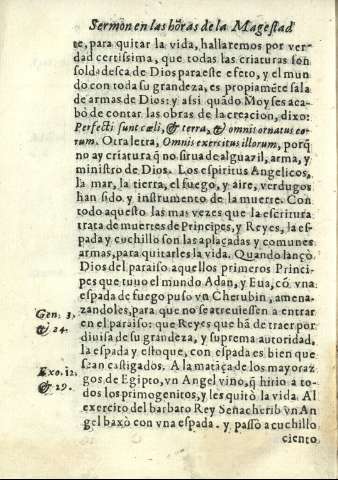 Sermon en las hõras de la Magestad
te, para quitar la vida, hallaremos por ver
dad certissima, que todas las criaturas son
soldadesca de Dios para este efeto, y el mun
do con toda su grandeza, es propiamẽte sala
de armas de Dios: y assi quãdo Moyses aca
bò de contar las obras de la creacion, dixo:
Perfecti sunt cæli, & terra, & omnis ornatus eo-
rum. Otra letra, Omnis exercitus illorum, porq̃
no ay criatura q̃ no sirua de alguazil, arma, y
ministro de Dios. Los espiritus Angelicos,
la mar, la tierra, el fuego, y aire, verdugos
han sido y instrumento de la muerte. Con
todo aquesto las mas vezes que la escritura
trata de muertes de Principes, y Reyes, la es-
pada y cuchillo son las aplaçadas y comunes
armas, para quitarles la vida. Quando lançò
Dios del paraiso aquellos primeros Princi-
pes que tuuo el mundo Adan, y Eua, cõ vna
espada de fuego puso vn Cherubin, amena-
Gen. 3. zandoles, para que no se atreuiessen a entrar
& 24. en el paraiso: que Reyes que hã de traer por
diuisa de su grandeza, y suprema autoridad,
la espada y estoque, con espada es bien que
Exo. 12. seã castigados. A la matãça de los mayoraz
& 29. gos de Egipto, vn Angel vino, q̃ hirio a to-
dos los primogenitos, y les quitò la vida. Al
exercito del barbaro Rey Senacherib vn An
gel baxò con vna espada, y passò a cuchillo
ciento